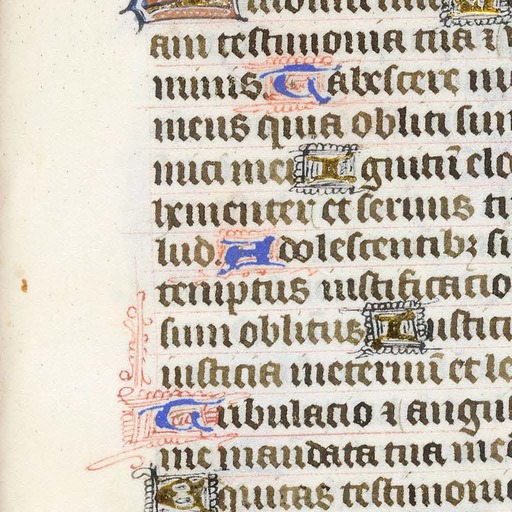 am testimonia tua ⁊
nimis. Tabescere
meus quia obliti sun
mici mei Ignitū elo
hementer et seruus tu
lud. Adolescentibꝫ su
temptus iustificacio
sum oblitus Iustici
iusticia ineternū et le
Tribulacio ⁊ angus
me mandata tua me
Equitas testimoni